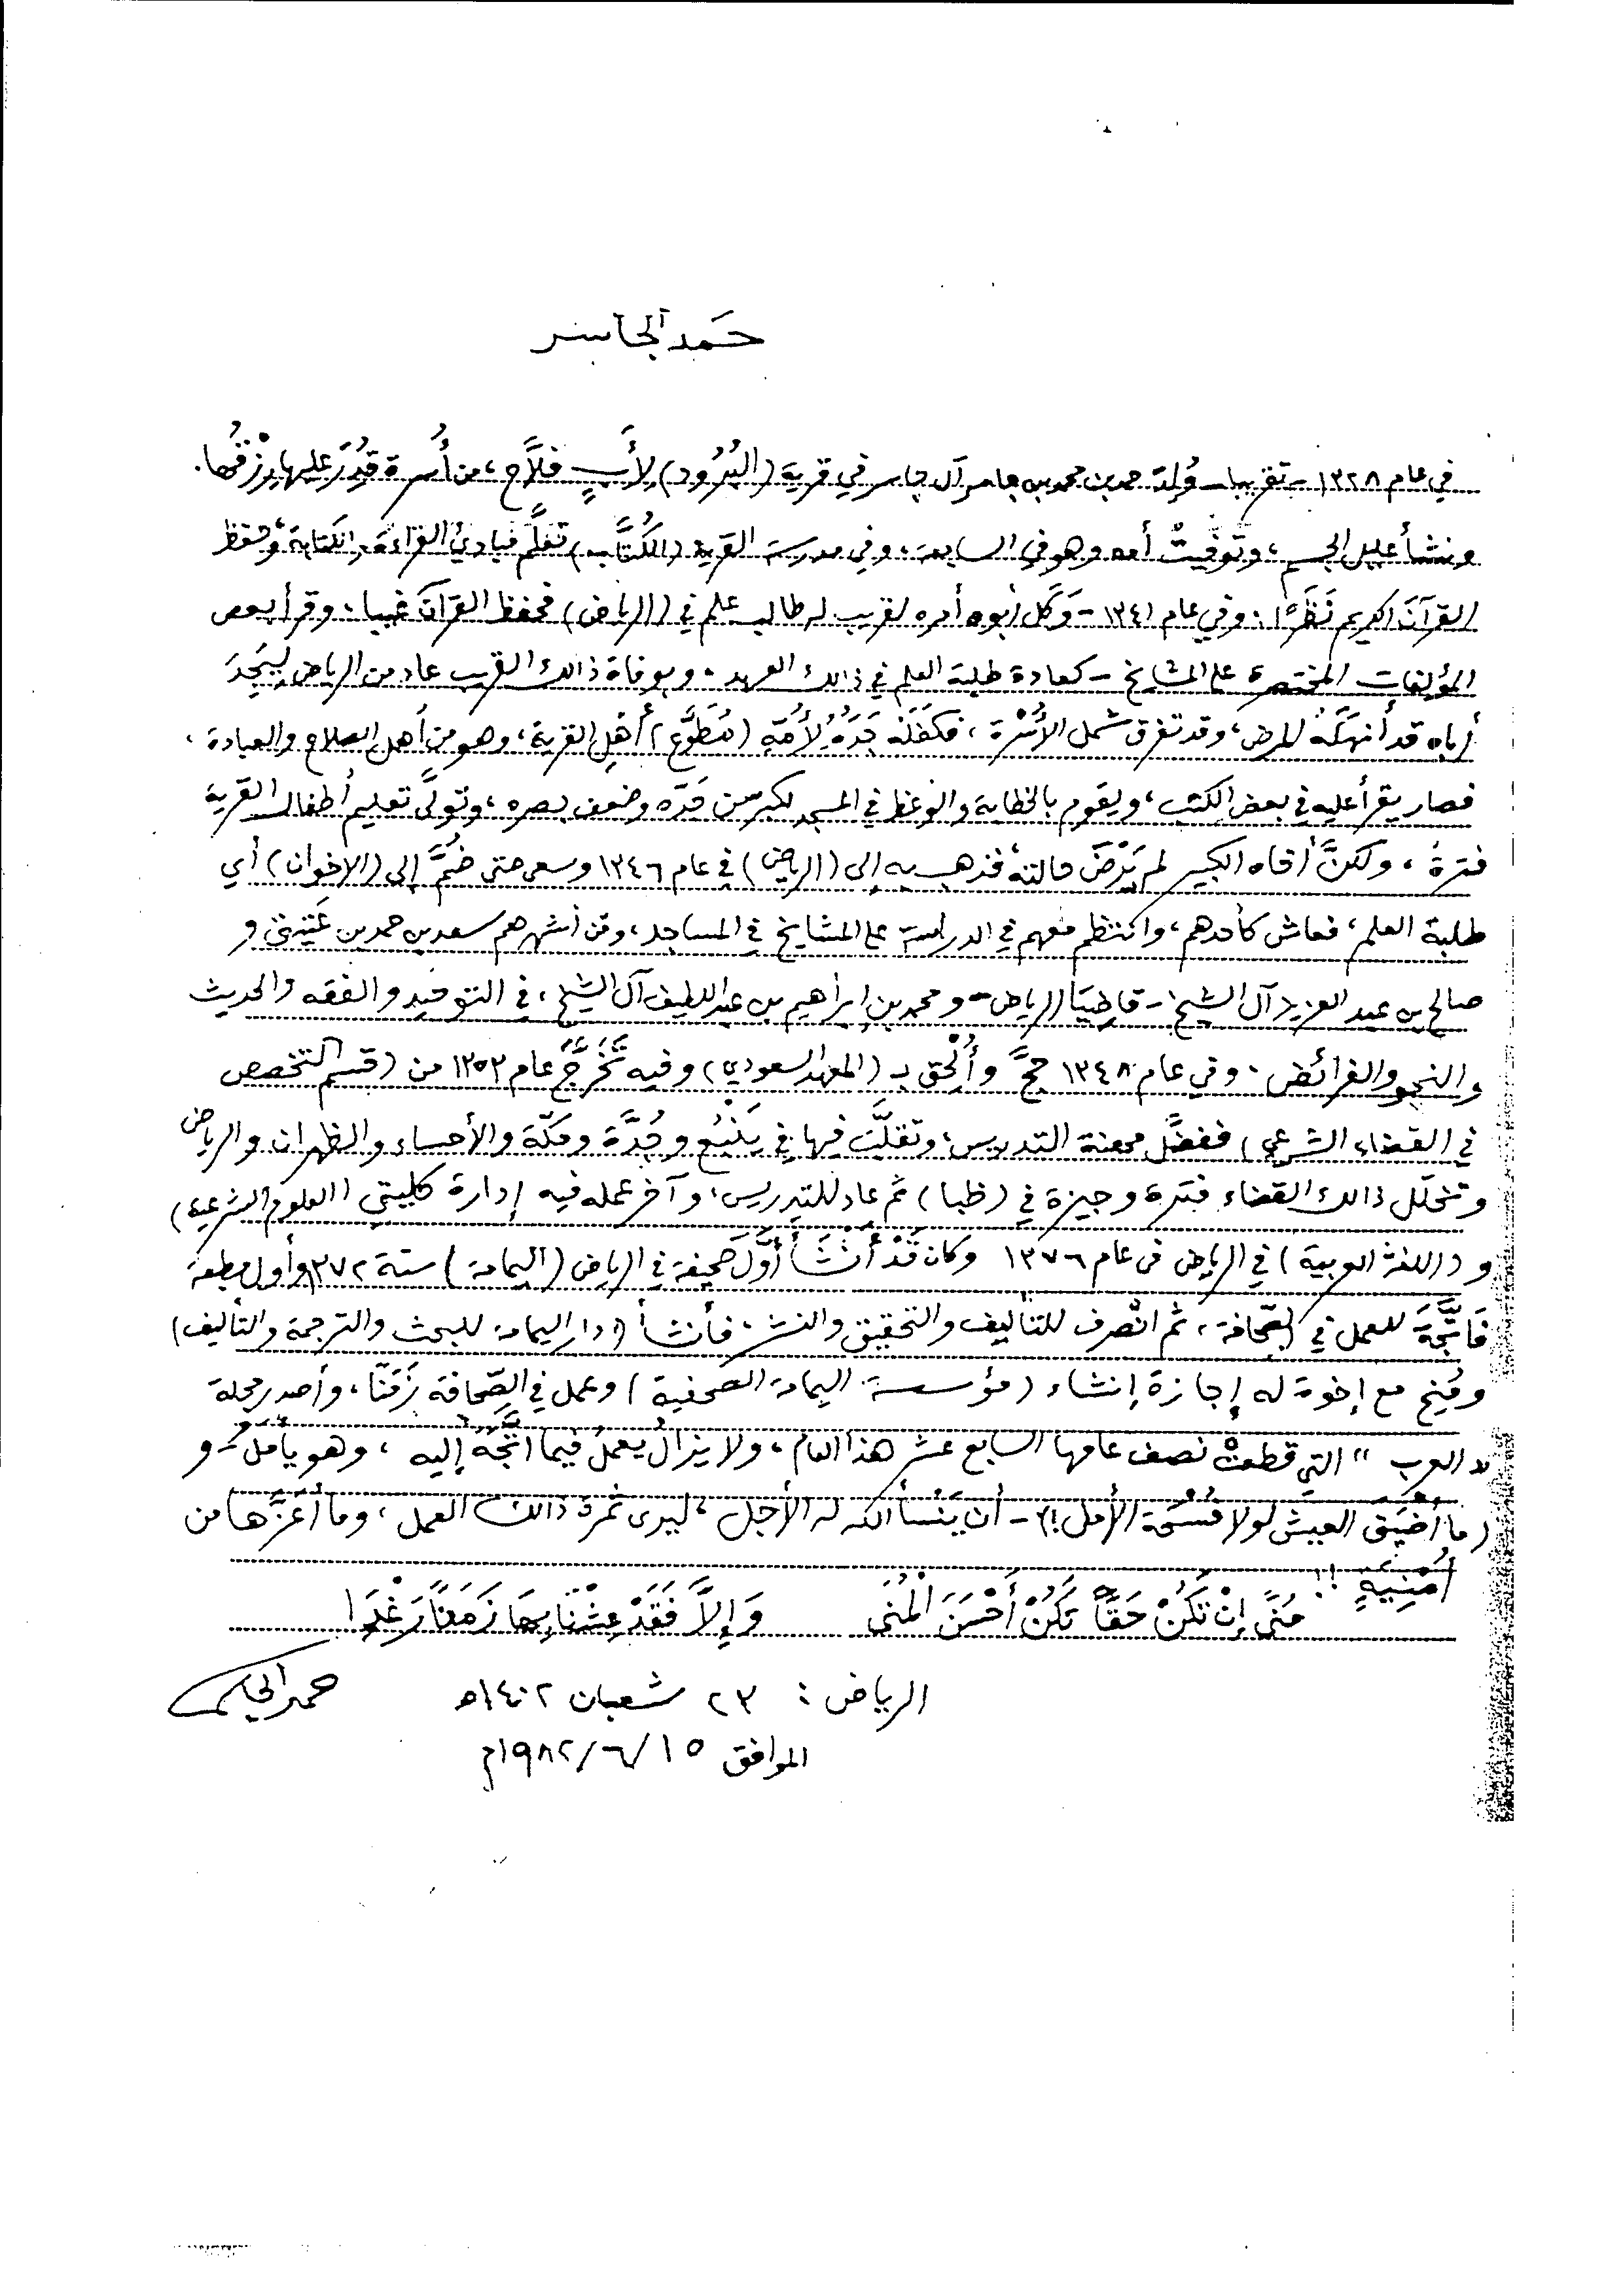 حَمد الجاسر
في عام ١٣٢٨ - تقريبا - وُلِدَ حمد بن محمد بن جاسر آل جاسر في قرية (البُرُود) لِأَبٍ فلَّاحٍ، من أُسرة قُدِرَ عليها رِزْقُها.
ونشأ عليل الجسم، وتُوفِّيتْ أمه وهو في السابعة، وفي مدرسة القرية (الكُتَّاب) تعلَّم مبادئ القراءة والكتابة، وحفظ
القرآنَ الكريم نَظَرًا. وفي عام ١٣٤١ - وَكَل أبوه أمره لقريب له طالب علم في (الرياض) فحفظ القرآنَ غيبا. وقرأ بعض
المؤلفات المختصرة على المشايخ - كعادة طلبة العلم في ذالك العهد. وبوفاة ذالك القريب عاد من الرياض لِيَجِدَ
أباه قد أنهكَهُ المرض، وقد تفرق شمل الأُسْرة، فكفلَهُ جَدُّهُ لِأُمِّهِ (مُطَوَّع) أَهْلِ القرية، وهو من أهل الصلاح والعبادة،
فصار يقرأ عليه في بعض الكتب، ويقوم بالخطابة والوعظ في المسجد لكبر سن جَدِّه وضعف بصره، وتولَّى تعليم أطفال القرية
فترةً، ولكنَّ أخاه الكبير لم يَرْضَ حالتَهُ فذهب به إلى (الرياض) في عام ١٣٤٦ وسعى حتى ضُمَّ إلى (الاخوان) أي
طلبة العلم، فعاش كأحدهم، وانتظم معهم في الدراسة على المشايخ في المساجد، ومن أشهرهم سعد بن حمد بن عَتِيق و
صالح بن عبد العزيز آل الشيخ - قاضِيَا الرياض - ومحمد بن إبراهيم بن عبد اللطيف آل الشيخ، في التوحيد والفقه والحديث
والنحو والفرائض. وفي عام ١٣٤٨ حجَّ وأُلْحِق بـ (المعهد السعودي) وفيه تَخَرَّجَ عام ١٣٥٣ من (قسم التخصص
في القضاء الشرعي) ففضَّل مهنة التدريس، وتقلَّبَ فيها في يَنْبُع وجُدَّة ومكّة والأحساء والظهران والرياض
وتخلل ذالك القضاء فترة وجيزة في (ظبا) ثم عاد للتدريس، وآخر عمله فيه إدارة كليتي (العلوم الشرعية)
و (اللغة العربية) في الرياض في عام ١٣٧٦ وكان قَدْ أَنْشَأَ أَوَّلَ صحيفة في الرياض (اليمامة) سنة ١٣٧٢ وأول مطبعة
فاتَّجَهَ للعمل في الصّحافة، ثم انْصرف للتأليف والتحقيق والنشر، فأنشأ (دار اليمامة للبحث والترجمة والتأليف)
ومُنِح مع إخوة له إجازة إنشاء (مؤسسة اليمامة الصحفية) وعمل في الصِّحافة زَمَنًا، وأصدر مجلة
" العرب " التي قطعتْ نصف عامها السابع عشر هذا العام، ولا يزالُ يعملُ فيما اتَّجَهَ إليه، وهو يأمل - و
(ما أَضْيَقَ العيش لولا فُسْحَة الأمل !) - أن يَنْسأ الله له الأجل، ليرى ثمرة ذالك العمل، وما أعَزَّها من
أُمْنِيةٍ !!
مُنًى إِنْ تَكُنْ حَقًّا تَكُنْ أَحْسَنَ الْمُنَى وَإِلَّا فَقَدْ عِشْنَا بِهَا زَمَنًا رَغْدَا
الرياض: ٢٣ شعبان ١٤٠٢هـ
حمد الجاسر
الموافق ١٥/٦/١٩٨٢م